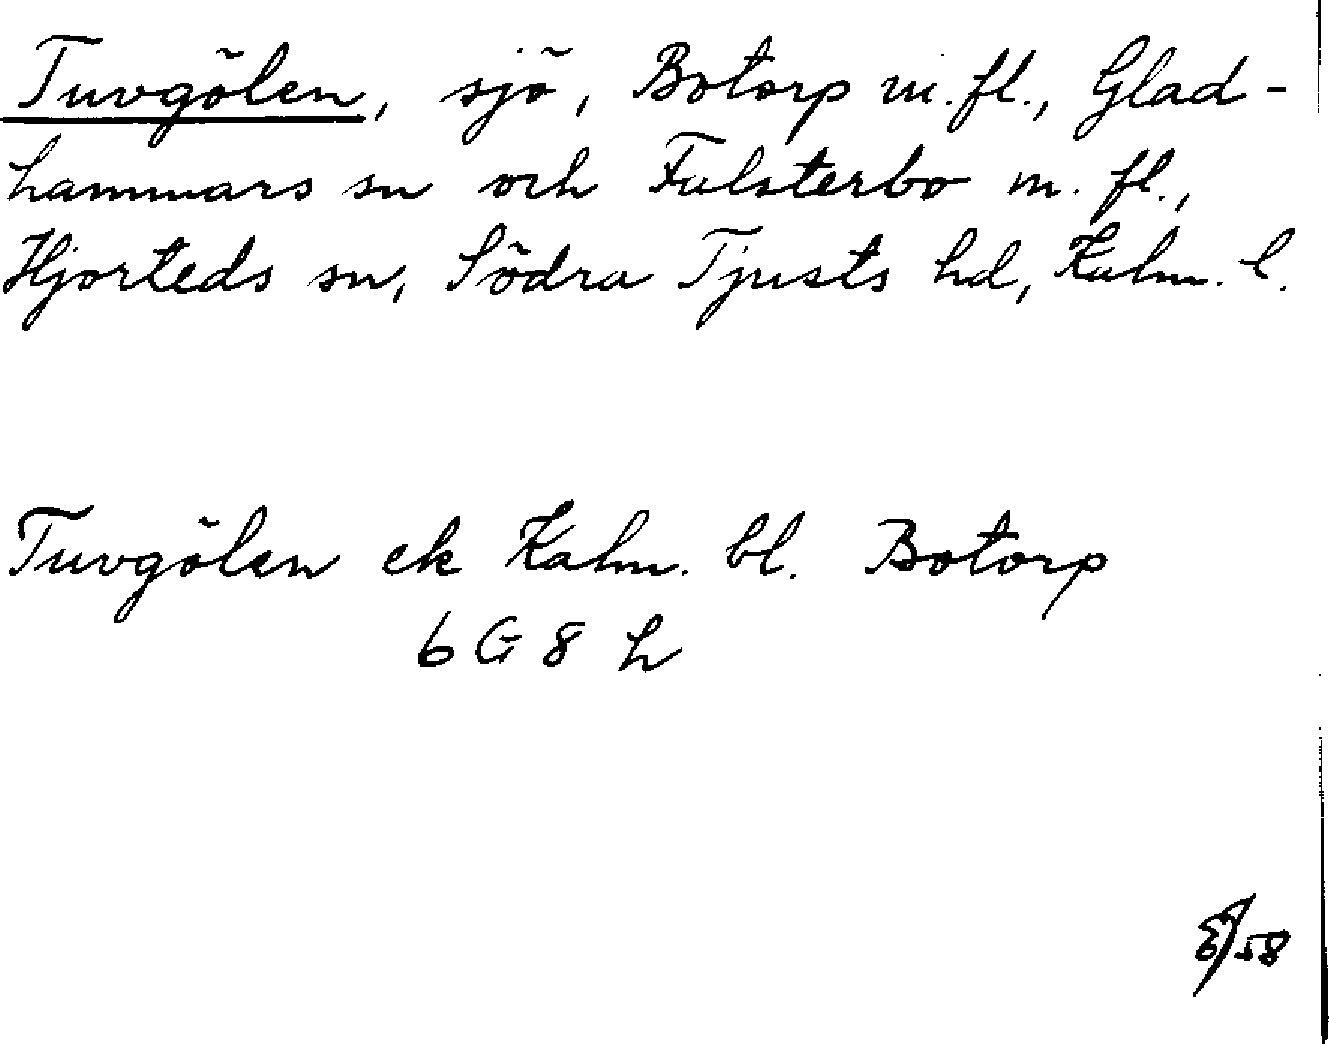 Tuvgölen, sjö, Botorp m.fl., Glad-
hammars sn och Falsterbo m.fl.,
Hjorteds sn, Södra Tjusts hd, Kalm. l.
Tuvgölen ek Kalm. bl. Botorp
6G 8 h
58